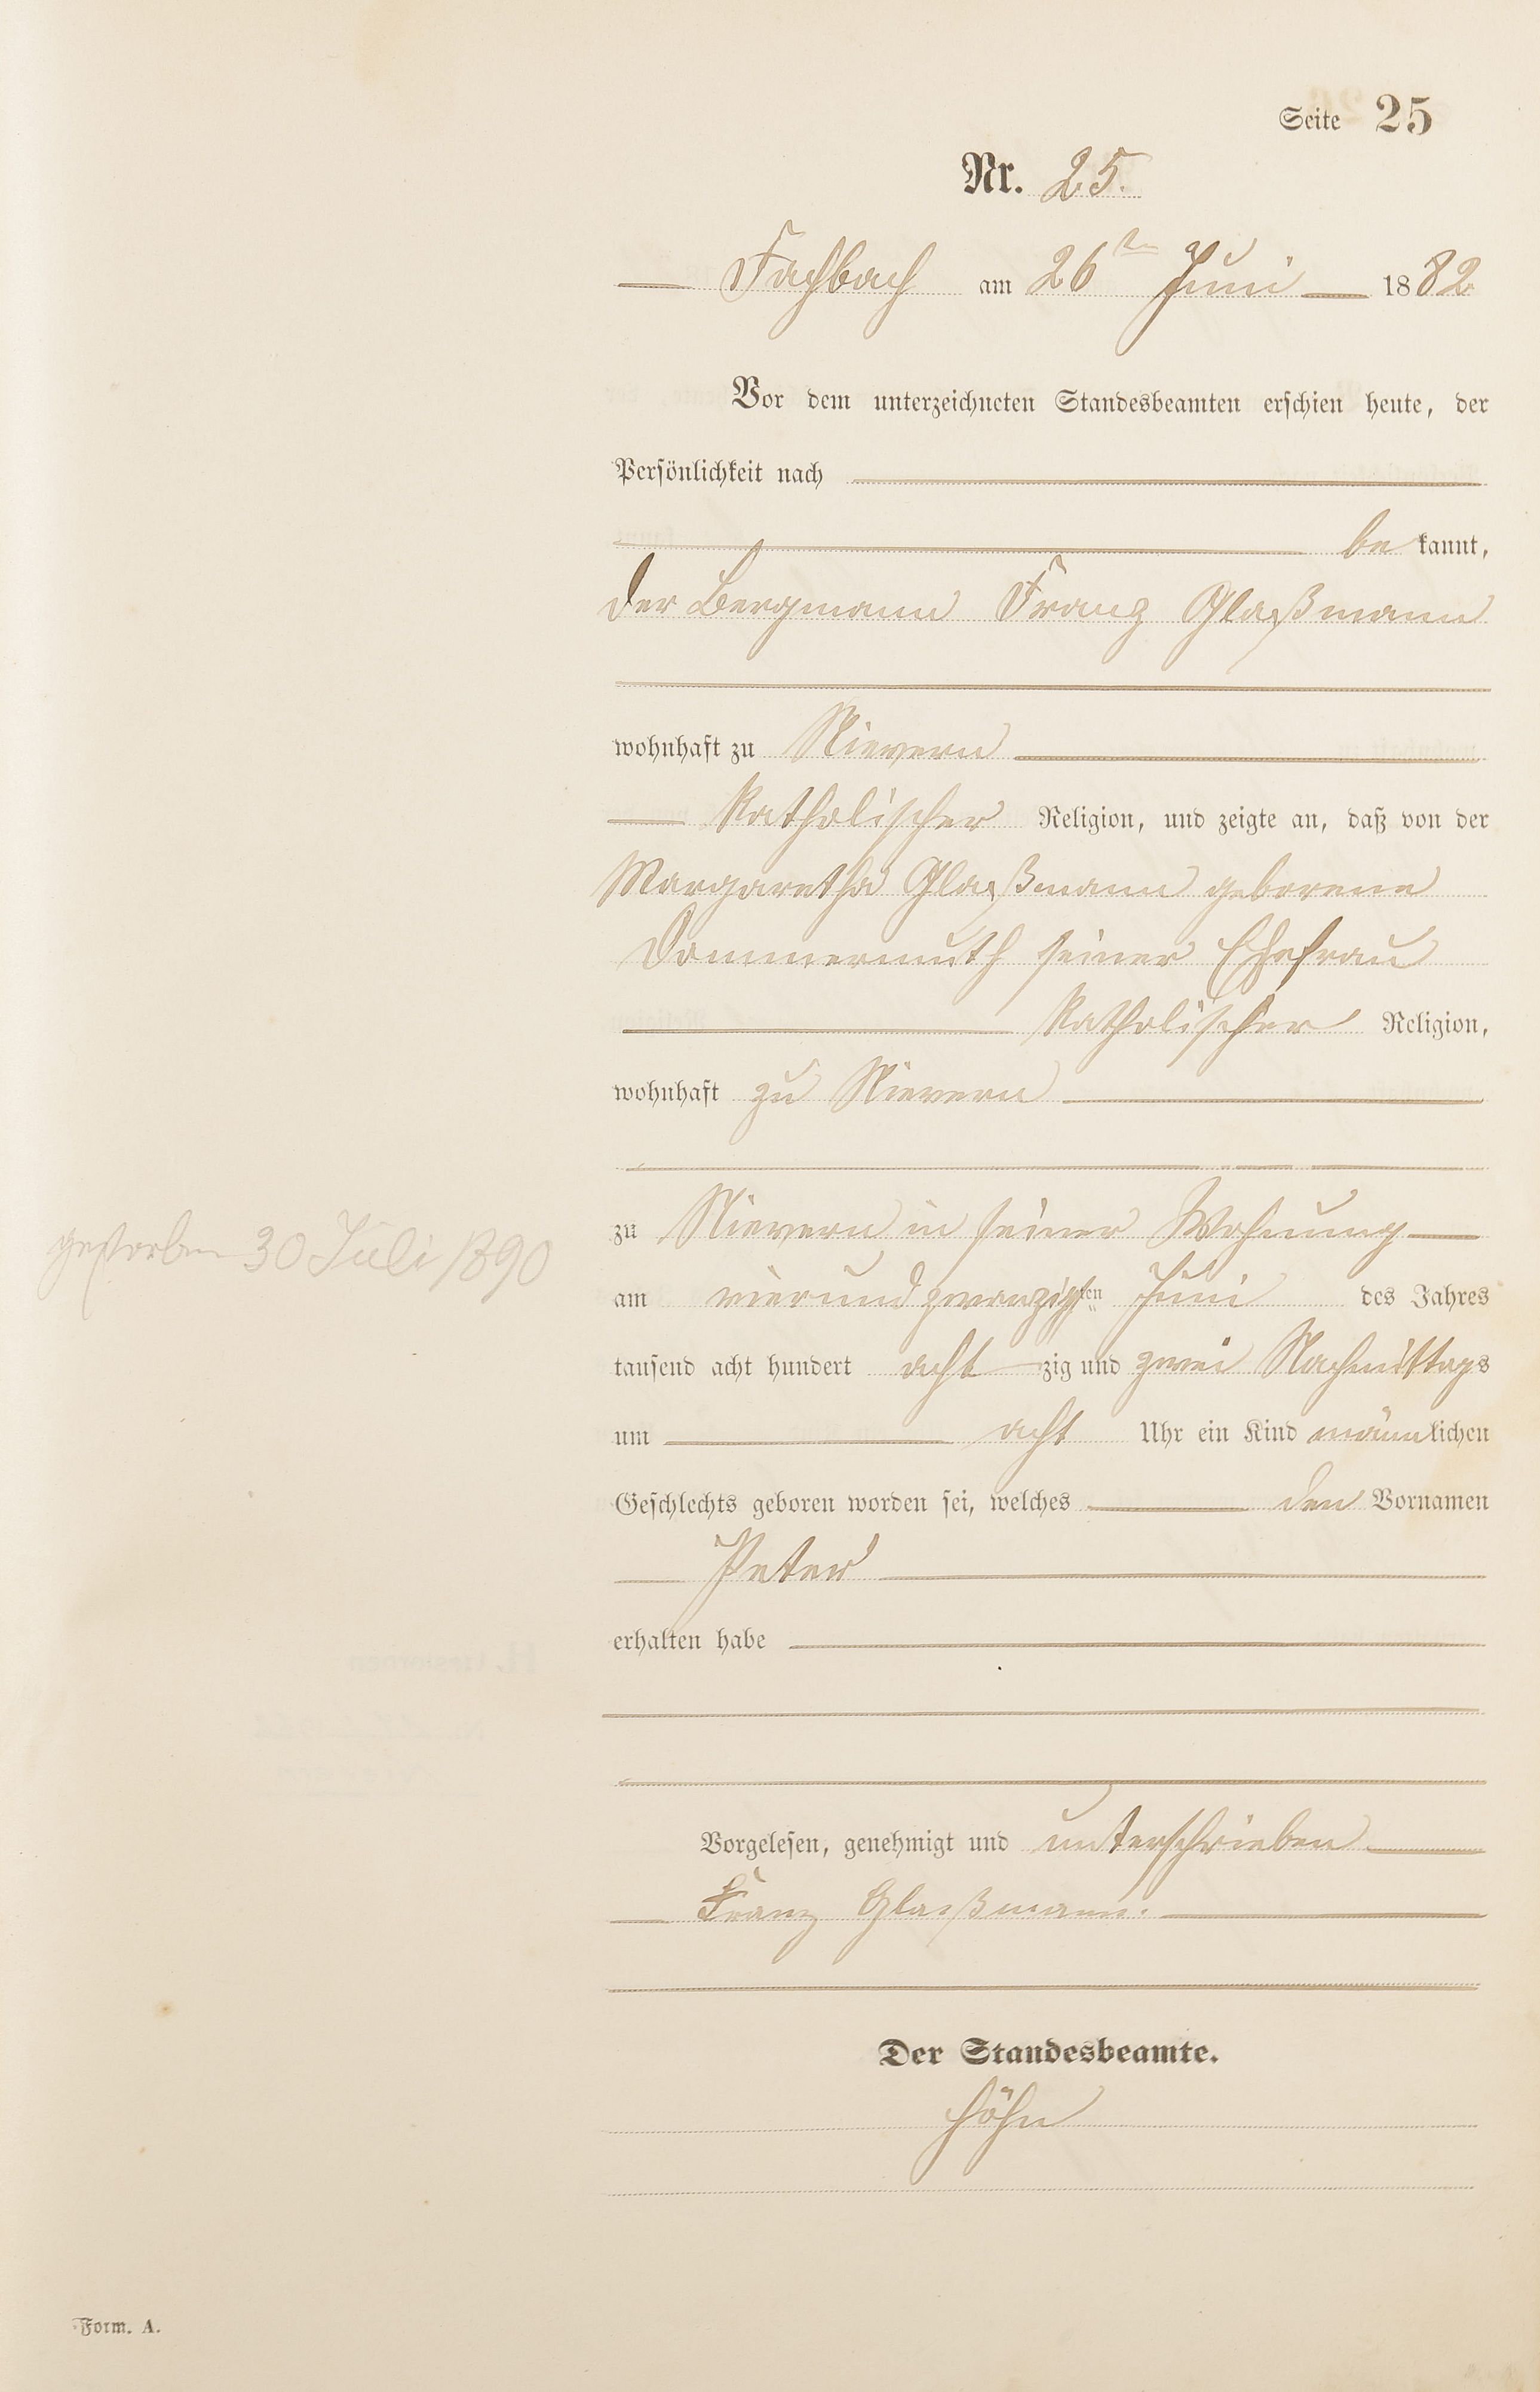 Seite 25
Nr. 25.
Fachbach am 26ten Juni 1882
Vor dem unterzeichneten Standesbeamten erschien heute, der
Persönlichkeit nach
be kannt,
der Bergmann Franz Glaßmann
wohnhaft zu Nievern
katholischer Religion, und zeigte an, daß von der
Margaretha Glaßmann geborene
Dommermuth seiner Ehefrau
katholischer Religion,
wohnhaft zu Nievern
zu Nievern in seiner Wohnung
gestorben 30 Juli 1890
am vierundzwanzigsten Juni des Jahres
tausend acht hundert acht zig und zwei Nachmittags
um acht Uhr ein Kind männlichen
Geschlechts geboren worden sei, welches den Vornamen
Peter
erhalten habe
Vorgelesen, genehmigt und unterschrieben
Franz Glaßmann.
Der Standesbeamte.
Höhn
Form. A.